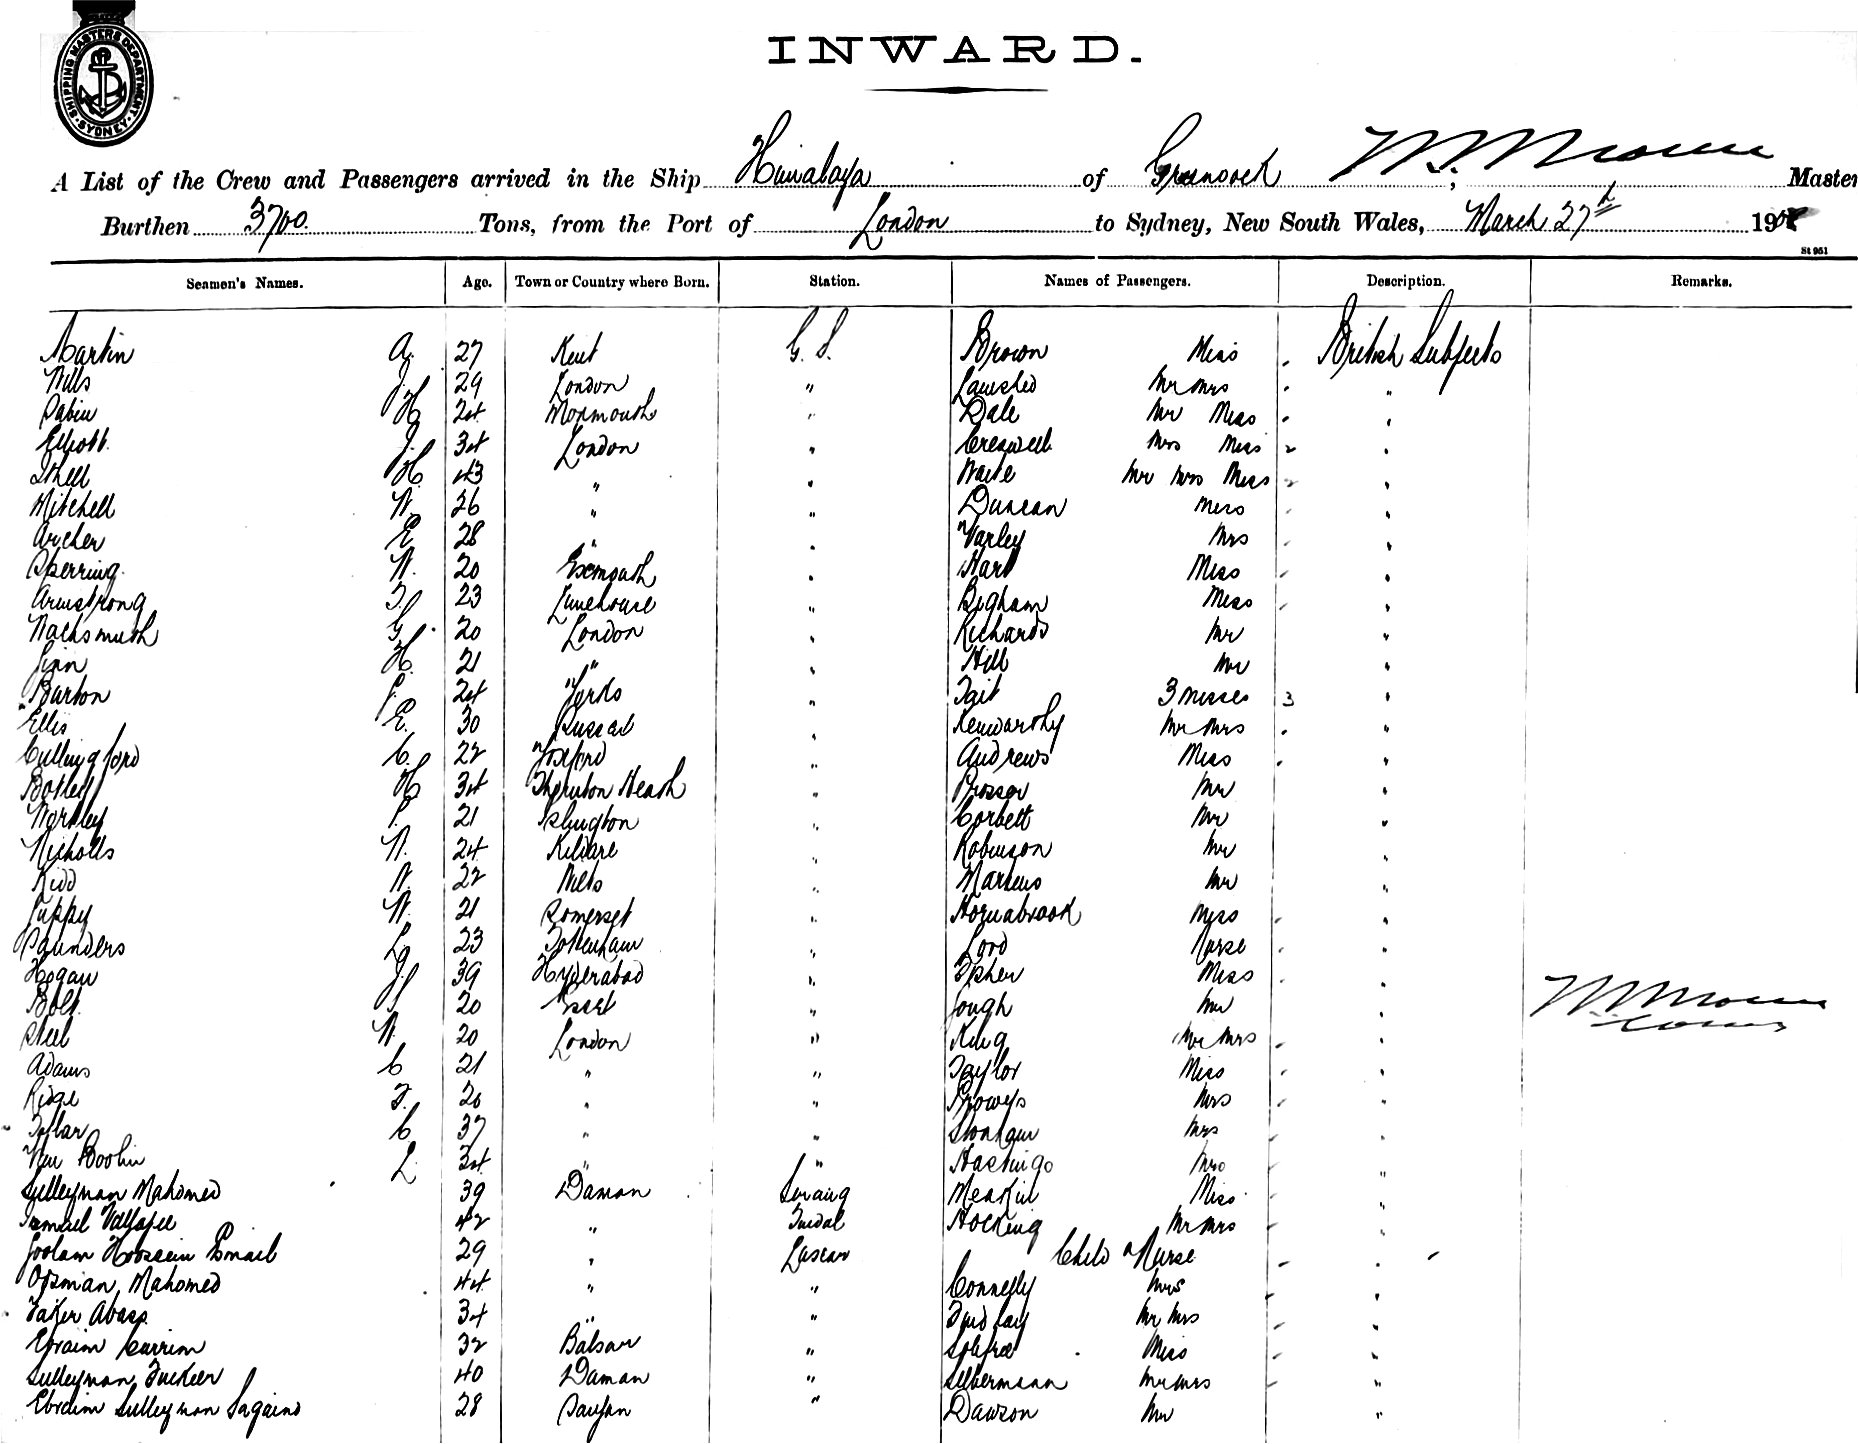 SHIPPING MASTERS DEPARTMENT. SYDNEY.
INWARD.
A List of the Crew and Passengers arrived in the Ship Himalaya of Greenock, Master
Burthen 3700 Tons, from the Port of London to Sydney, New South Wales, March 27th 190
St 951
Seamen's Names. Age. Town or Country where Born. Station. Names of Passengers. Description. Remarks.
Martin A. 27 Kent G. S. Brown Miss British Subjects
Wills J. 29 London " Mr Mrs "
Sabin H 24 Monmouth " Dale Mr Miss "
Elliott. J. 34 London " Creswell Mrs Miss 2 "
H. 43 " " Waite Mr Mrs Miss 2 "
Mitchell W. 26 " " Duncan Miss "
Archer E 28 " " Varley Mrs "
Sperring W. 20 Exmouth " Hart Miss "
Armstrong F. 23 Limehouse " Bigham Miss "
Wachsmuth G. 20 London " Richards Mr "
Finn H. 21 " " Hill Mr "
Barton P. 24 Yorks " Tait 3 Misses 3 "
Ellis E. 30 " Kenworthy Mr Mrs "
Cullingford C. 22 Yoxford " Andrews Miss "
H 34 Thornton Heath " Prosser Mr "
Workley P. 21 Islington " Corbett Mr "
Nicholls W. 24 Kildare " Robinson Mr "
Kidd W. 22 Wilts " Martens Mr "
Juppy W. 21 Somerset " Hornabrook Miss "
Saunders 23 Tottenham " Lord Nurse "
Hogan J. 39 Hyderabad " Miss "
Bolt 20 " Gough Mr "
Steel W. 20 London " King Mr Mrs "
Adams C 21 " " Taylor Miss "
Ridge F. 20 " " Mrs "
C 37 " " Stonham Mrs "
L. 34 " " Hastings Mrs "
Sulleyman Mahomed 39 Daman Serang Meakin Miss "
Ismail 42 " Tindal Hocking Mr Mrs "
Goolam Hoossein Esmail 29 " Lascar Child Nurse "
Osman Mahomed 44 " " Connelly Mrs "
Faker Abass 34 " " Findlay Mr Mrs "
Ebraim Currim 32 Balsar " Miss "
Sulleyman Fuckeer 40 Daman " Silbermann Mr Mrs "
Ebraim Sulleyman 28 " Dawson Mr "